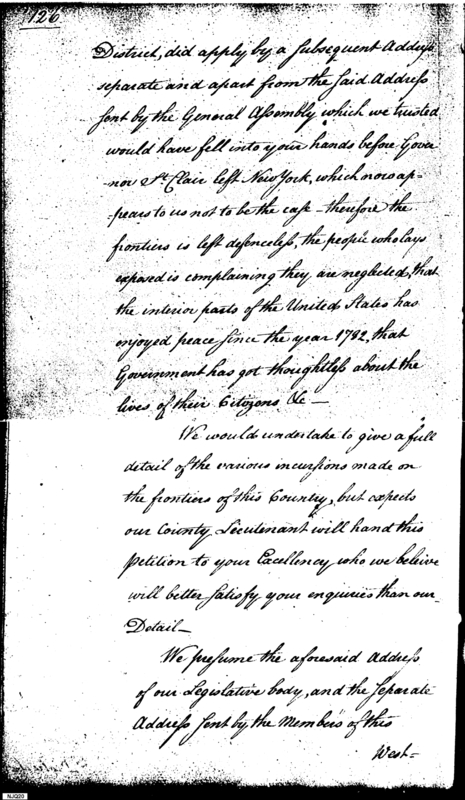 126
District, did apply by a Subsequent Address
separate and apart from the said Address
sent by the General Assembly which we trusted
would have fell into your hands before Gover
nor St. Clair left New York, which now ap-
pears to us not to be the case - therefore the
frontiers is left defenceless, the people who lays
exposed is complaining they are neglected, that
the interior parts of the United States has
enjoyed peace since the year 1782, that
Government has got thoughtless about the
lives of their Citizens &c -
We would undertake to give a full
detail of the various incursions made on
the frontiers of this Country, but expects
our County Lieutenant will hand this
Petition to your Excellency who we beleive
will better satisfy your enquiries than our
Detail -
We presume the aforesaid Address
of our Legislative body, and the Separate
Address sent by the Members of this
West=
NJQ20